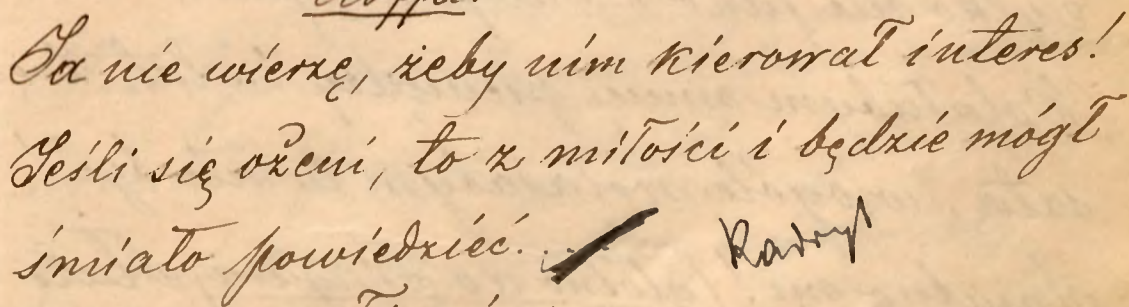 Ja nie wierzę, żeby nim kierował interes!
Jeśli się ożeni, to z miłości i będzie mógł
śmiało powiedzieć...